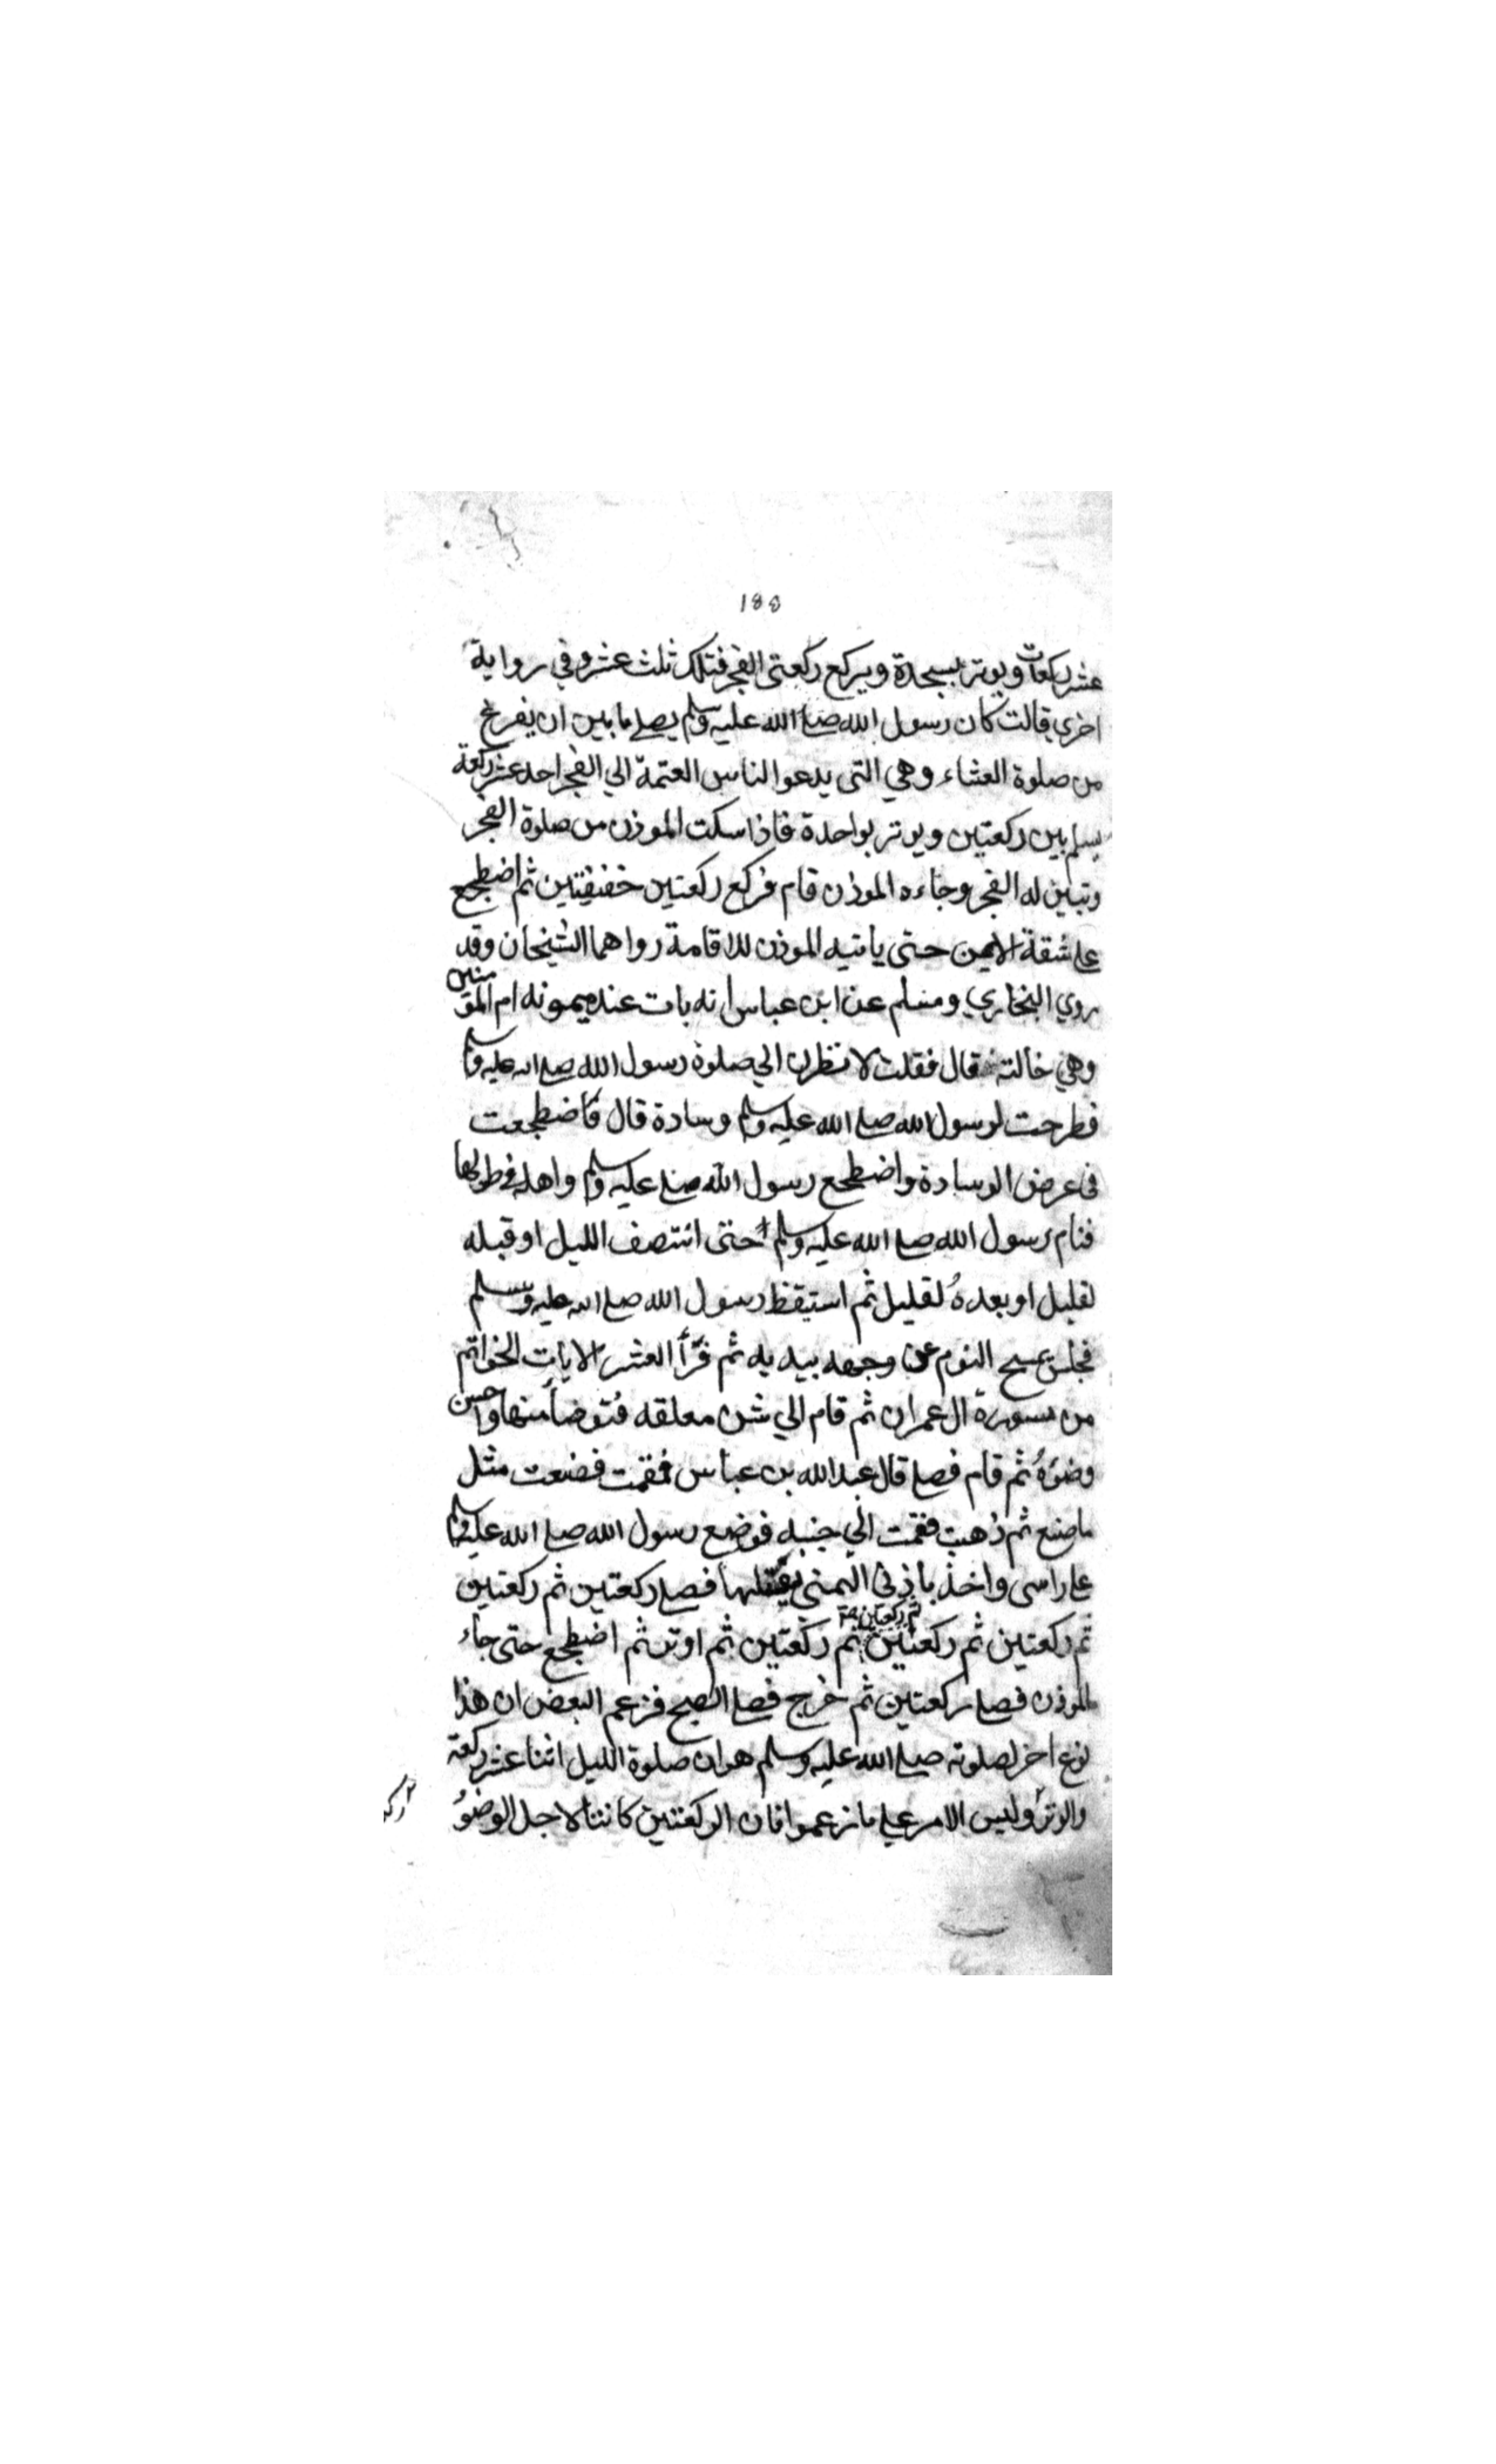 ١٨٥
عشر ركعات ويوتر بسجدة ويركع ركعتي الفجر فتلك ثلث عشر وفي رواية
اخري قالت كان رسول الله صلي الله عليه وسلم يصلي ما بين ان يفرغ
من صلوة العشاء وهي التي يدعوا الناس العتمة الي الفجر احد عشر ركعة
يسلم بين ركعتين ويوتر بواحدة فاذا سكت الموذن من صلوة الفجر
وتبين له الفجر وجاءه الموذن قام فركع ركعتين خفيفتين ثم اضطجع
علي شقة الايمن حتى ياتيه الموذن للاقامة رواهما الشيخان وقد
روي البخاري ومسلم عن ابن عباس انه بات عند ميمونه ام المؤمنين
وهي خالته قال فقلت لانظرن الي صلوة رسول الله صلي الله عليه وسلم
فطرحت لرسول الله صلي الله عليه وسلم وسادة قال فاضطجعت
في عرض الوسادة واضطجع رسول الله صلي عليه وسلم واهله في طولها
فنام رسول الله صلي الله عليه وسلم حتى انتصف الليل او قبله
لقليل او بعدهُ لقليل ثم استيقظ رسول الله صلي الله عليه وسلم
فجلس يمسح النوم عن وجهه بيديه ثم قرأ العشر الايات الخواتم
من سورة ال عمران ثم قام الي شن معلقه فتوضأ منها واحسن
وضوءهُ ثم قام فصلي قال عبد الله بن عباس فقمت فصنعت مثل
ما صنع ثم ذهبت فقمت الي جنبه فوضع رسول الله صلي الله عليه وسلم
علي راسي واخذ باذني اليمني يفتلها فصلي ركعتين ثم ركعتين
ثم ركعتين ثم ركعتين ثم ركعتين ثم ركعتين ثم اوتر ثم اضطجع حتى جاء
الموذن فصلي ركعتين ثم خرج فصلي الصبح فزعم البعض ان هذا
نوع اخر لصلوته صلي الله عليه وسلم هو ان صلوة الليل اثنا عشر ركعة
والوتر وليس الامر علي ما زعموا فان الركعتين كانتا لاجل الوضوُ